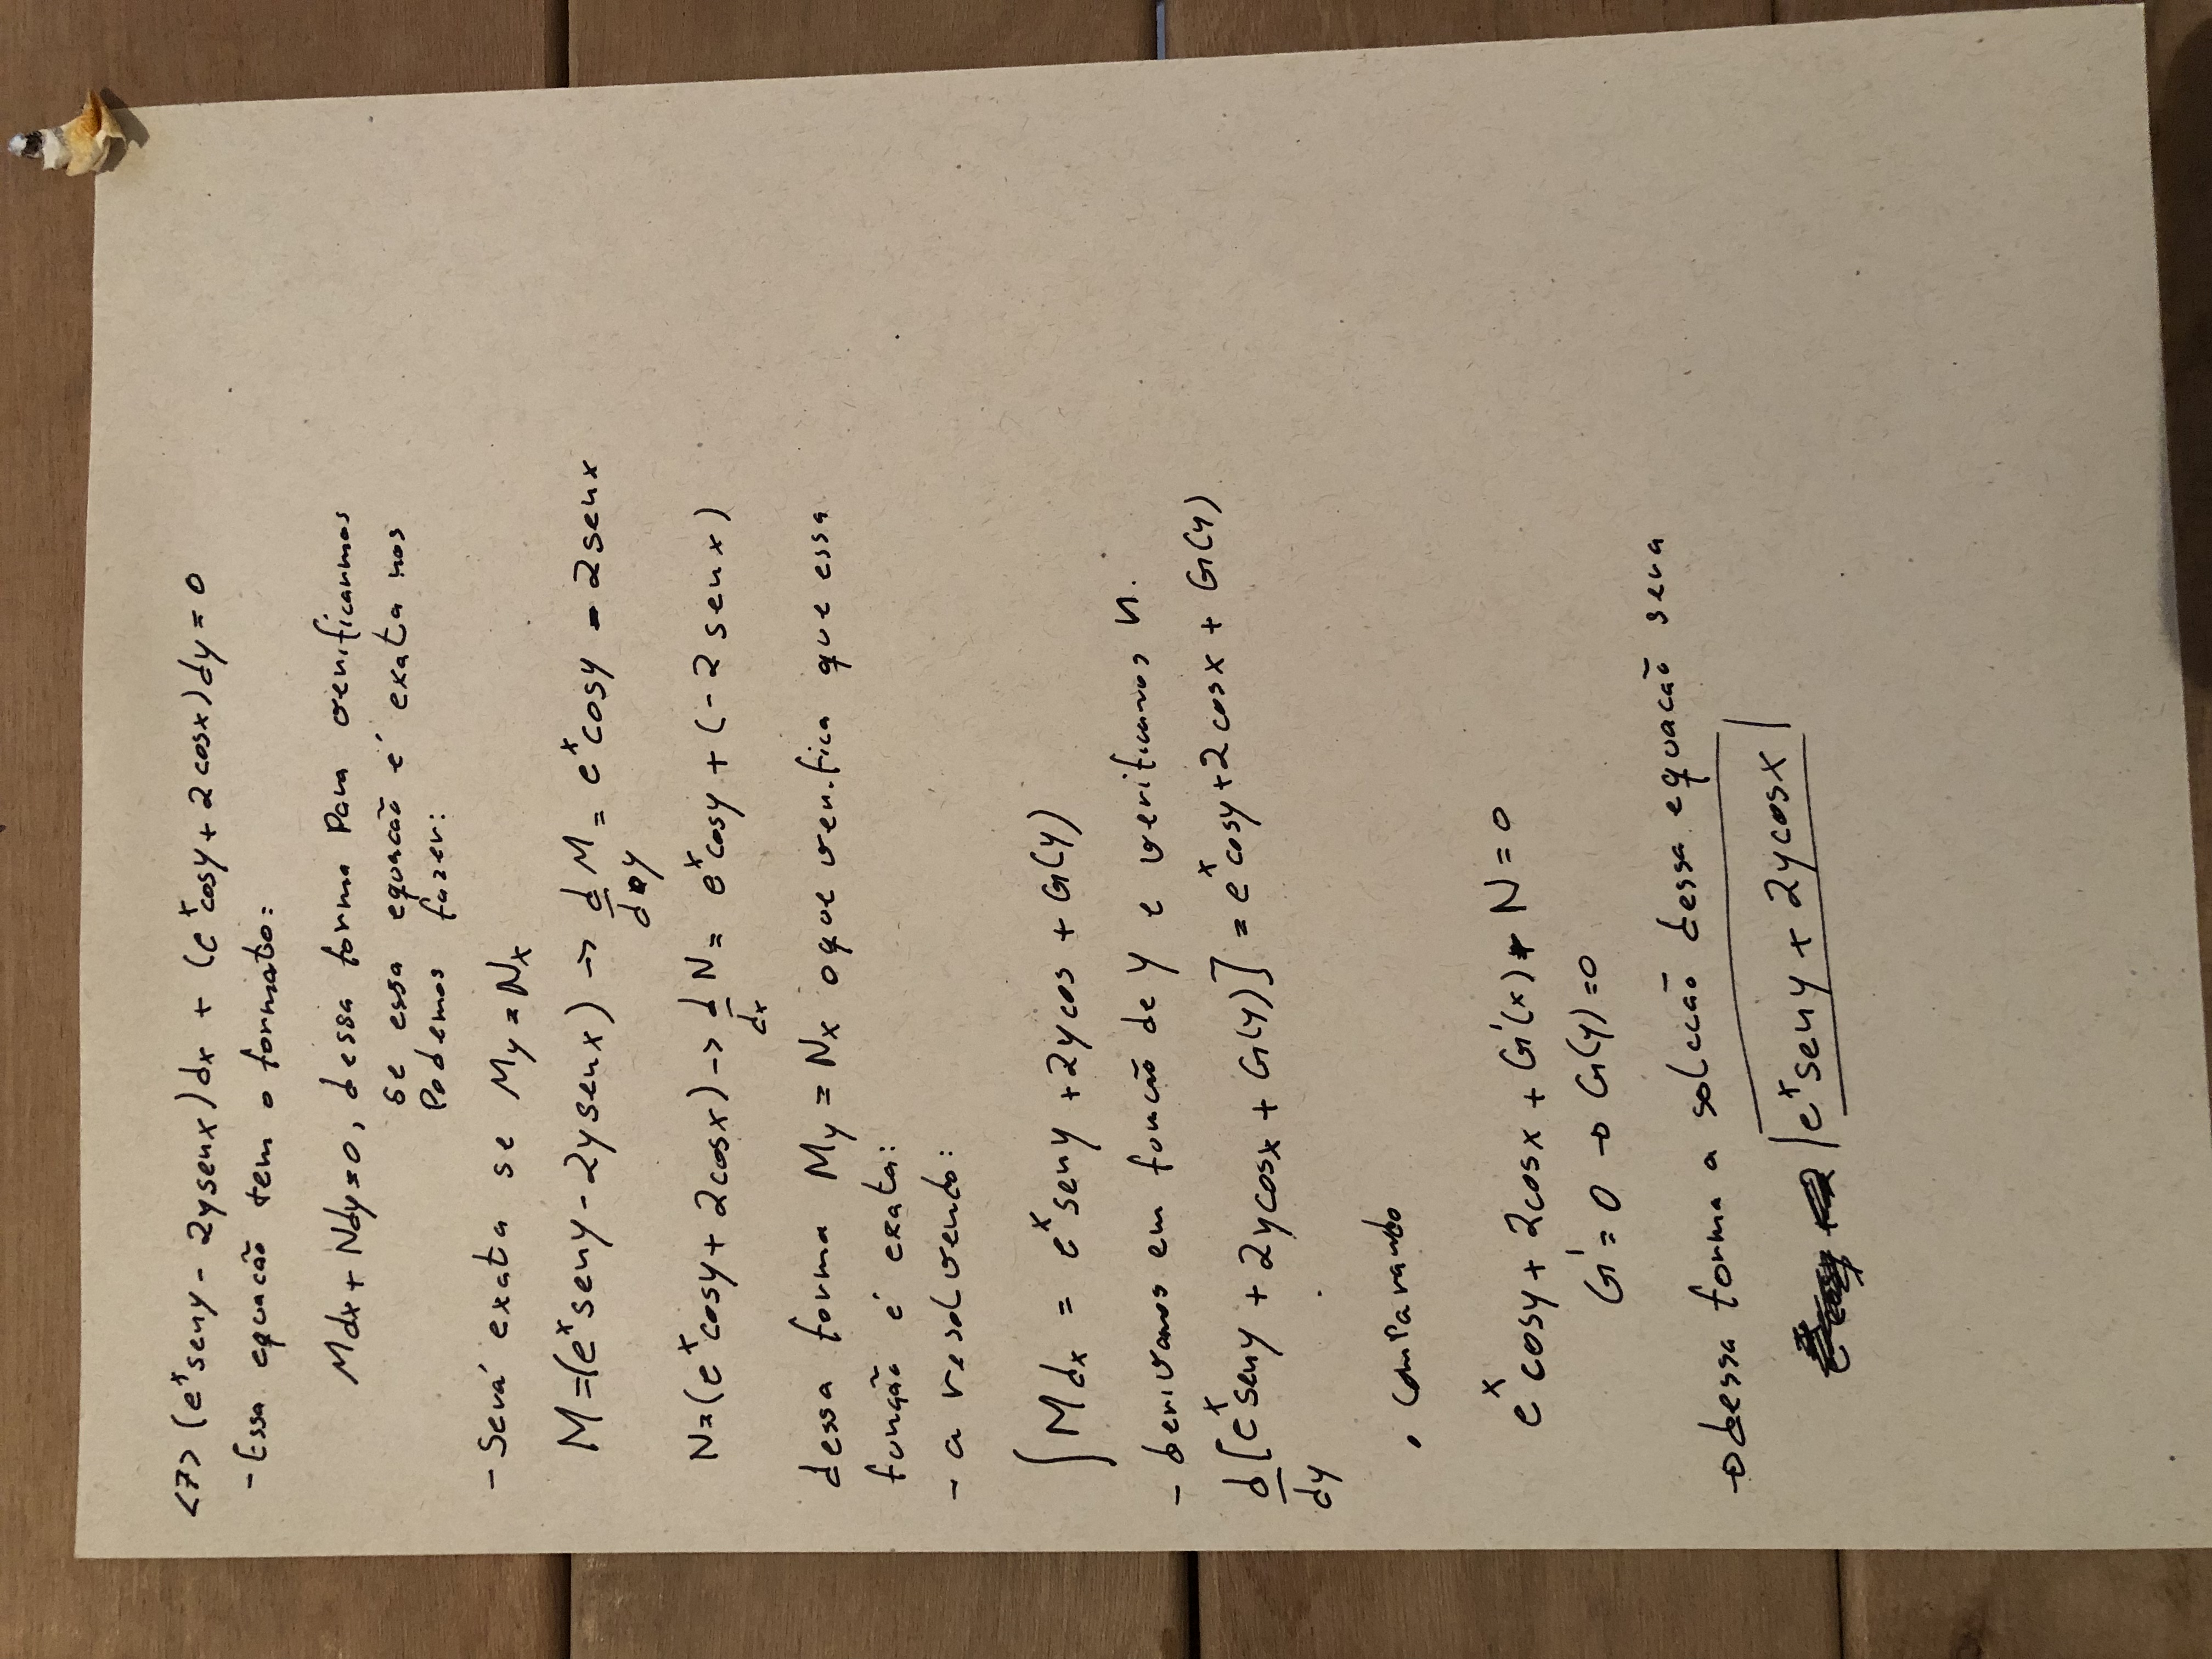 <7> (e^x seny - 2y senx)dx + (e^x cosy + 2cosx)dy = 0
- Essa equacão tem o formato:
Mdx + Ndy = 0, dessa forma Para verificarmos
se essa equacão é exata nos
Podemos fazer:
- Será exata se My = Nx
M = (e^x seny - 2y senx) → d/dy M = e^x cosy - 2senx
N = (e^x cosy + 2cosx) -> d/dx N = e^x cosy + (-2 senx)
dessa forma My = Nx oque verifica que essa
função é exata:
- a resolvendo:
∫Mdx = e^x seny + 2y cos + G(y)
- derivamos em funcão de y e verificamos N.
d/dy [e^x seny + 2y cosx + G(y)] = e^x cosy + 2cosx + G(y)
• comparando
e^x cosy + 2cosx + G'(x) N = 0
G' = 0 → G(y) = 0
→ dessa forma a dessa equacão sera
e^x seny + 2y cosx